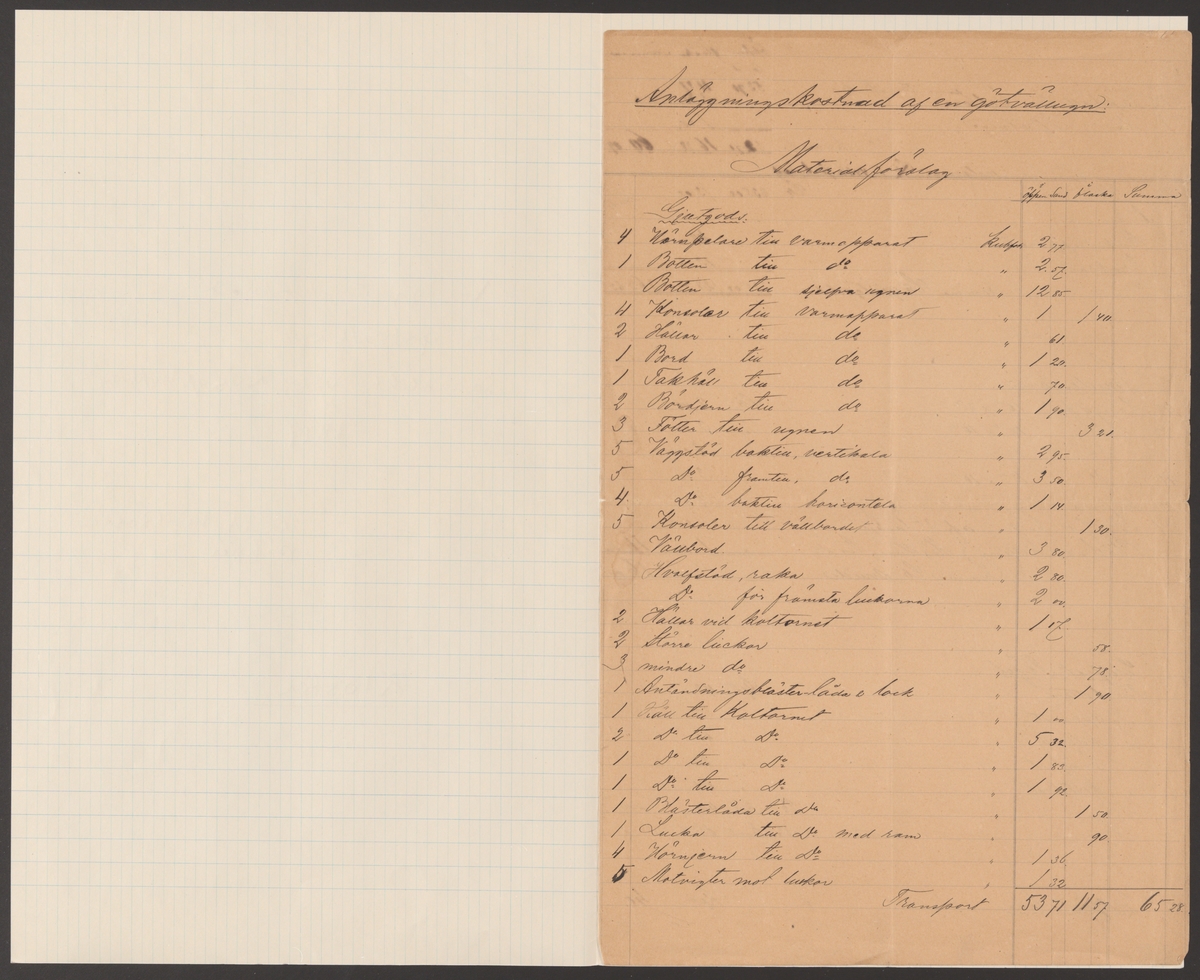 Anläggningskostnad af en götvällugn:
Materialförslag
Öppen Sand flaska Summa
Gjutgods:
4 Hörnpelare till varmapparat Kubfot 2 77
1 Botten till do " 2.57
Botten till sjelfva ugnen " 12 85
4 Konsoler till varmapparat " 1 1 40.
2 Hällar till do " 61.
1 Bord till do " 1 20.
1 Takhäll till do " 70
2 Bördjern till do " 1 90.
3 Fötter till ugnen " 3 21.
5 Väggstöd baktill, vertikala " 2 95.
5 Do framtill, do " 3 50.
4. Do baktill horicontela " 1 14.
5 Konsoler till vällbordet " 1 30.
Vällbord " 3 80.
Hvalfstöd, raka " 2 80.
Do för främsta luckorna " 2 00.
2 Hällar vid koltornet " 1 07
2 Större luckor " 58.
3 mindre do " 78.
1 Antändningsblästerlåda o lock " 1 90
1 Häll till Koltornet " 1 00
2 Do till Do " 5 32.
1 Do till Do " 1 83.
1 Do till Do " 1 92.
1 Blästerlåda till do " 1 50.
1 Lucka till Do med ram " 90.
4 Hörnjern till Do " 1 36.
5 Motvigter mot luckor " 1 32.
Transport 53 71 11 57 65 28.